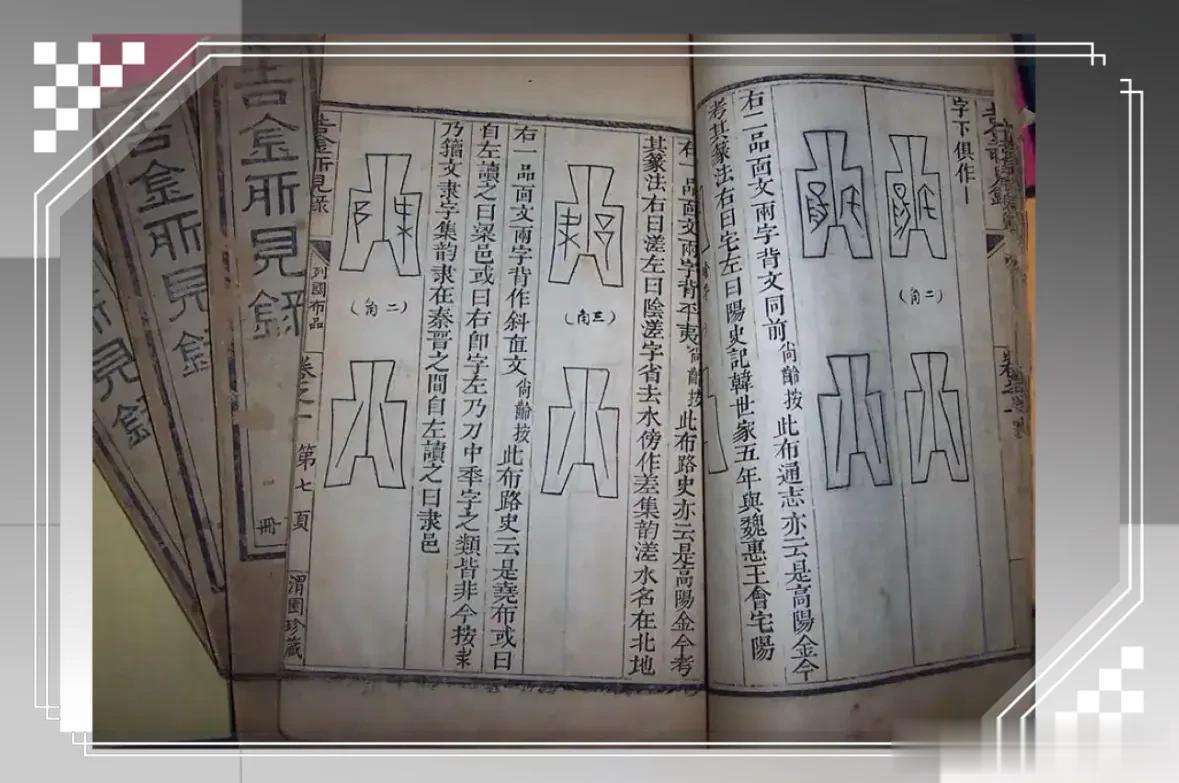 吉金所見錄
字下俱作
(角二)
右二品面文兩字背文同前尚齡按此布通志亦云是高陽金今
考其篆法右曰宅左曰陽史記韓世家五年與魏惠王會宅陽
品面文兩字背平夷尚齡按此布路史亦云是高陽金今考
其篆法右曰溠左曰陰溠字省去水傍作差集韵溠水名在北地
(角三)
右一品面文兩字背作斜直文尚齡按此布路史云是堯布或曰
自左讀之曰梁邑或曰右卽字左乃刀中季字之類皆非今按隶
乃籀文隶字集韵隶在秦晉之間自左讀之曰隶邑
(角二)
吉金所見錄 列國布品 卷之一 第七頁 渭園珍藏
吉金所見錄 冊
吉金所見錄
所見錄